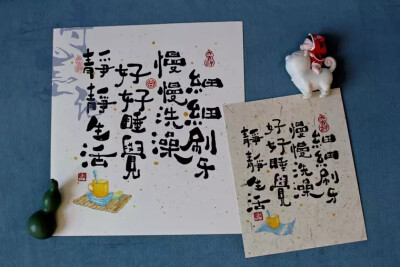 細細刷牙
慢慢洗澡
好好睡覺
靜靜生活
細細刷牙
慢慢洗澡
好好睡覺
靜靜生活